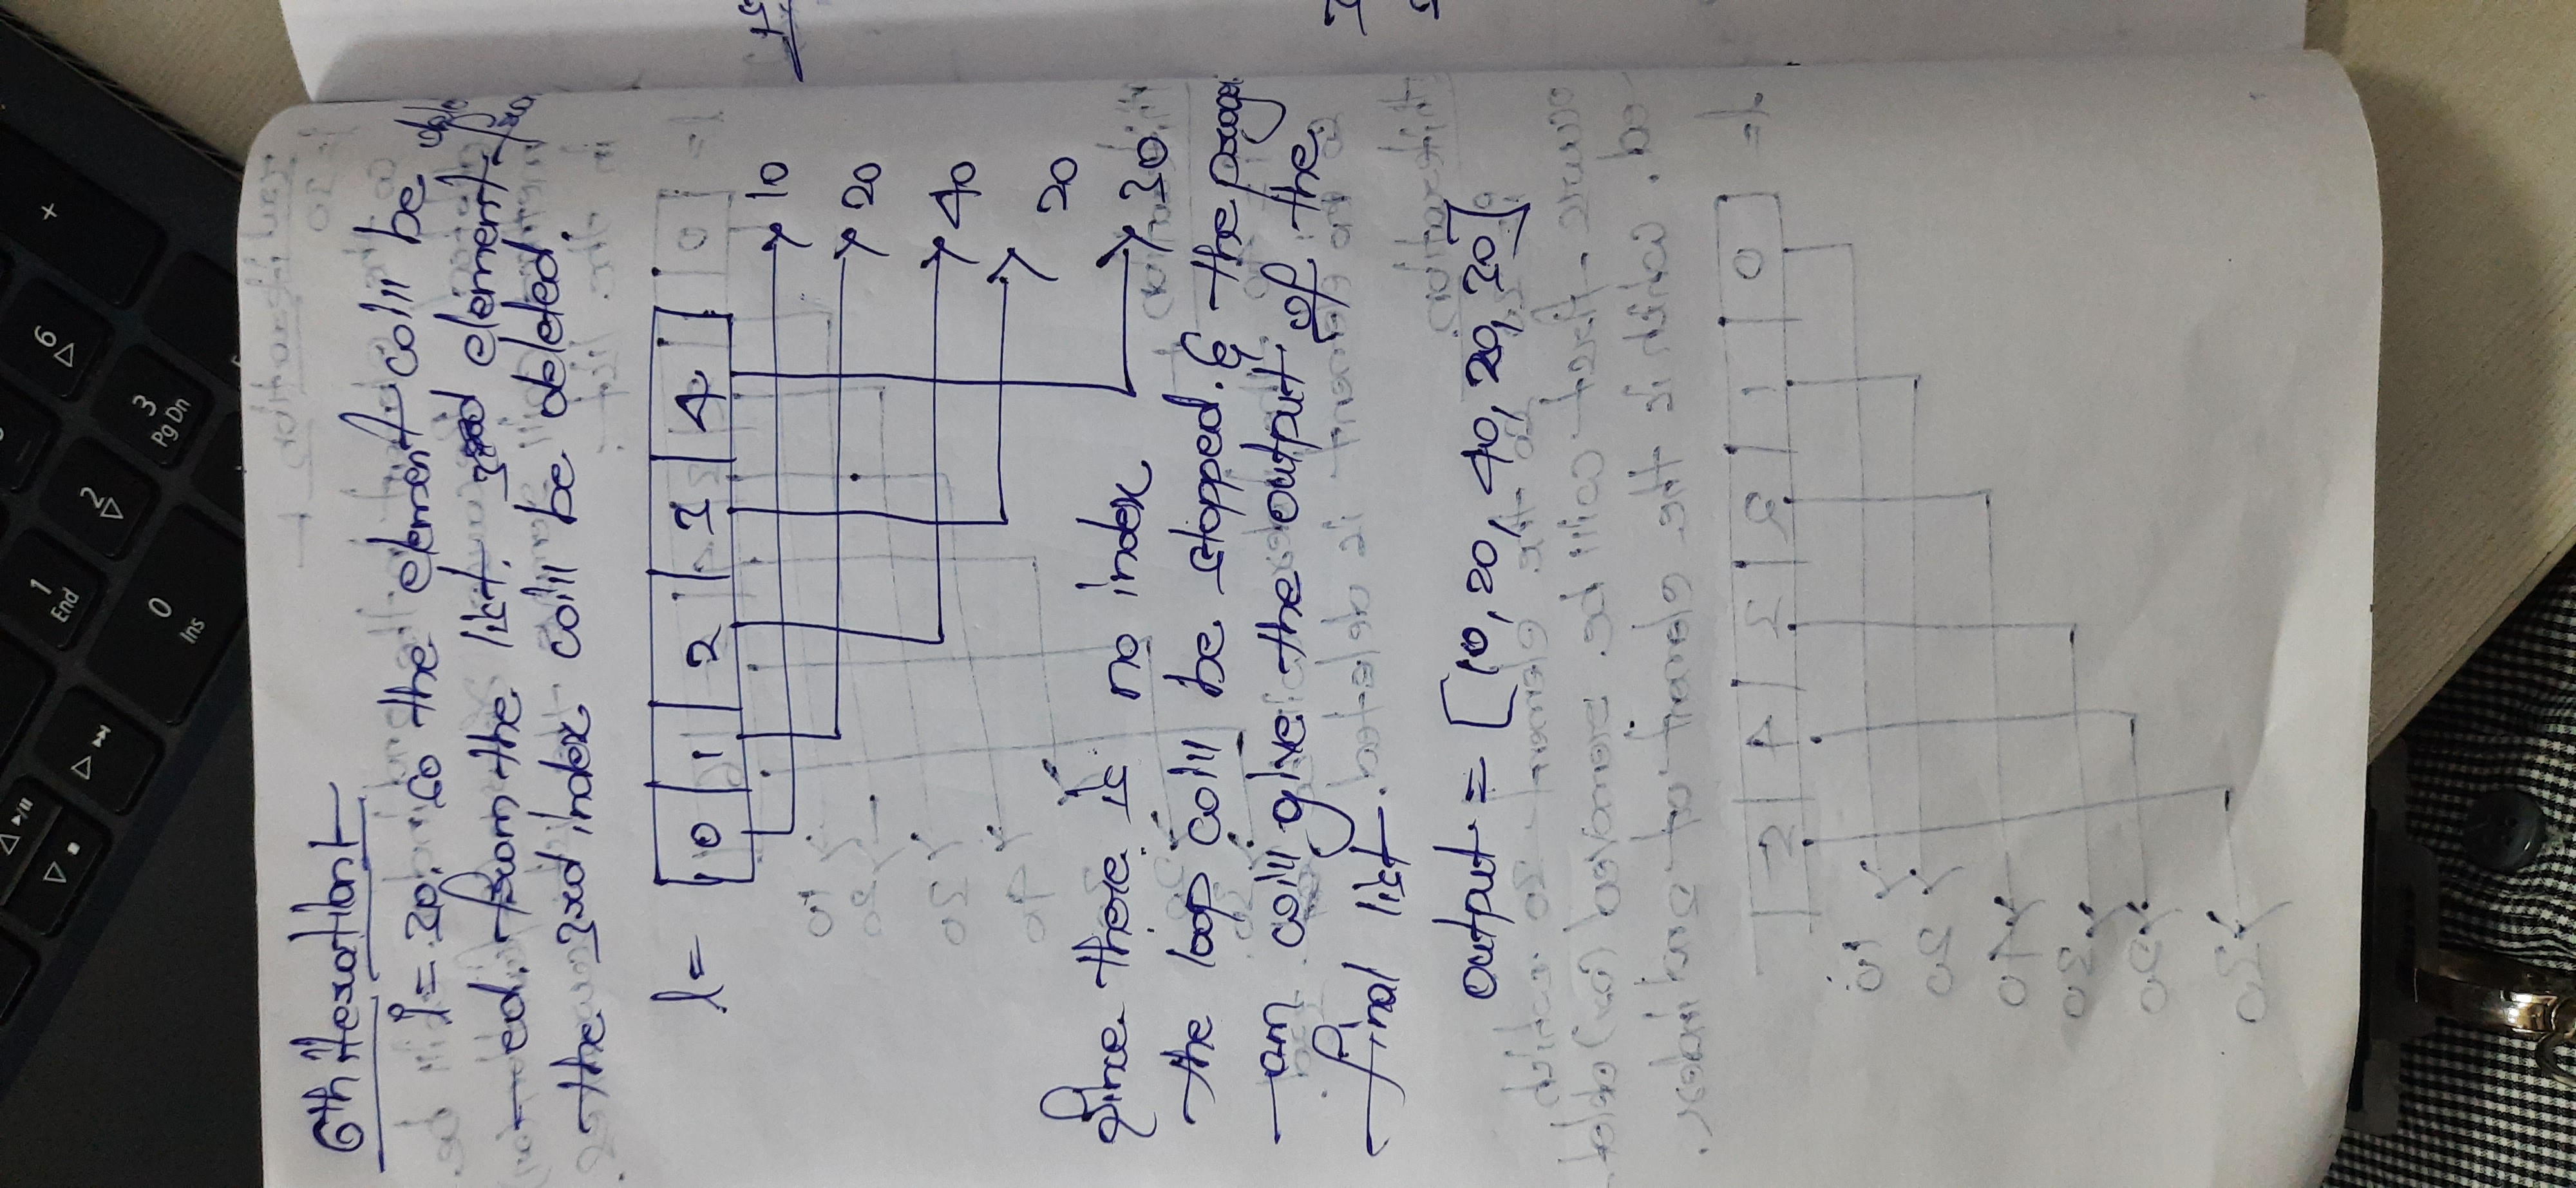 1
End
2
3
Pg Dn
6
+
0
Ins
6th iteration:-
i = 30. so the element will be dele
-ed. from the list. 3rd element fro
the 3rd index will be deleted.
l = 0 1 2 3 4
10
20
40
20
30
Since there is no index
the loop will be stopped. & the progr
-am will give the output of the
final list.
output = [10, 20, 40, 20, 30]